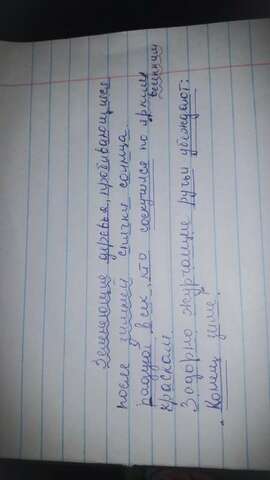 Зеленеющие деревья, пробивающиеся
после зимней спячки солнца
радуют всех, кто соскучился по ярким
весенним
краскам.
Задорно журчащие ручьи убеждают:
"Конец зиме.